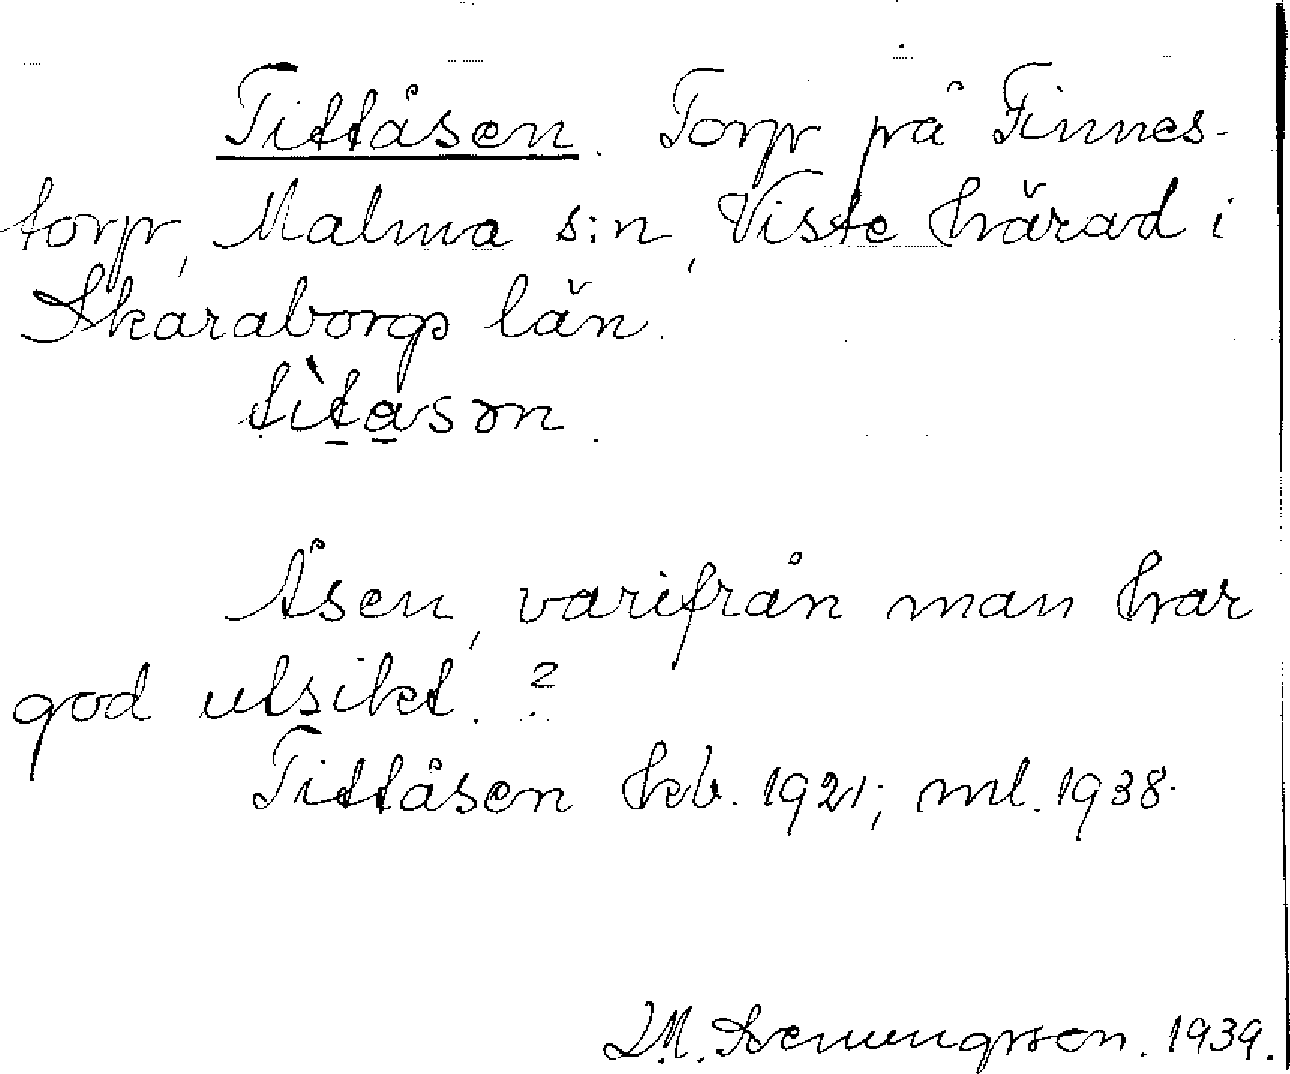 Tittåsen. Torp på Finnes-
torp, Malma s:n, Viste härad i
Skaraborgs län.
Åsen, varifrån man har
god utsikt. ?
Tittåsen hkb. 1921; ml. 1938.
1939.